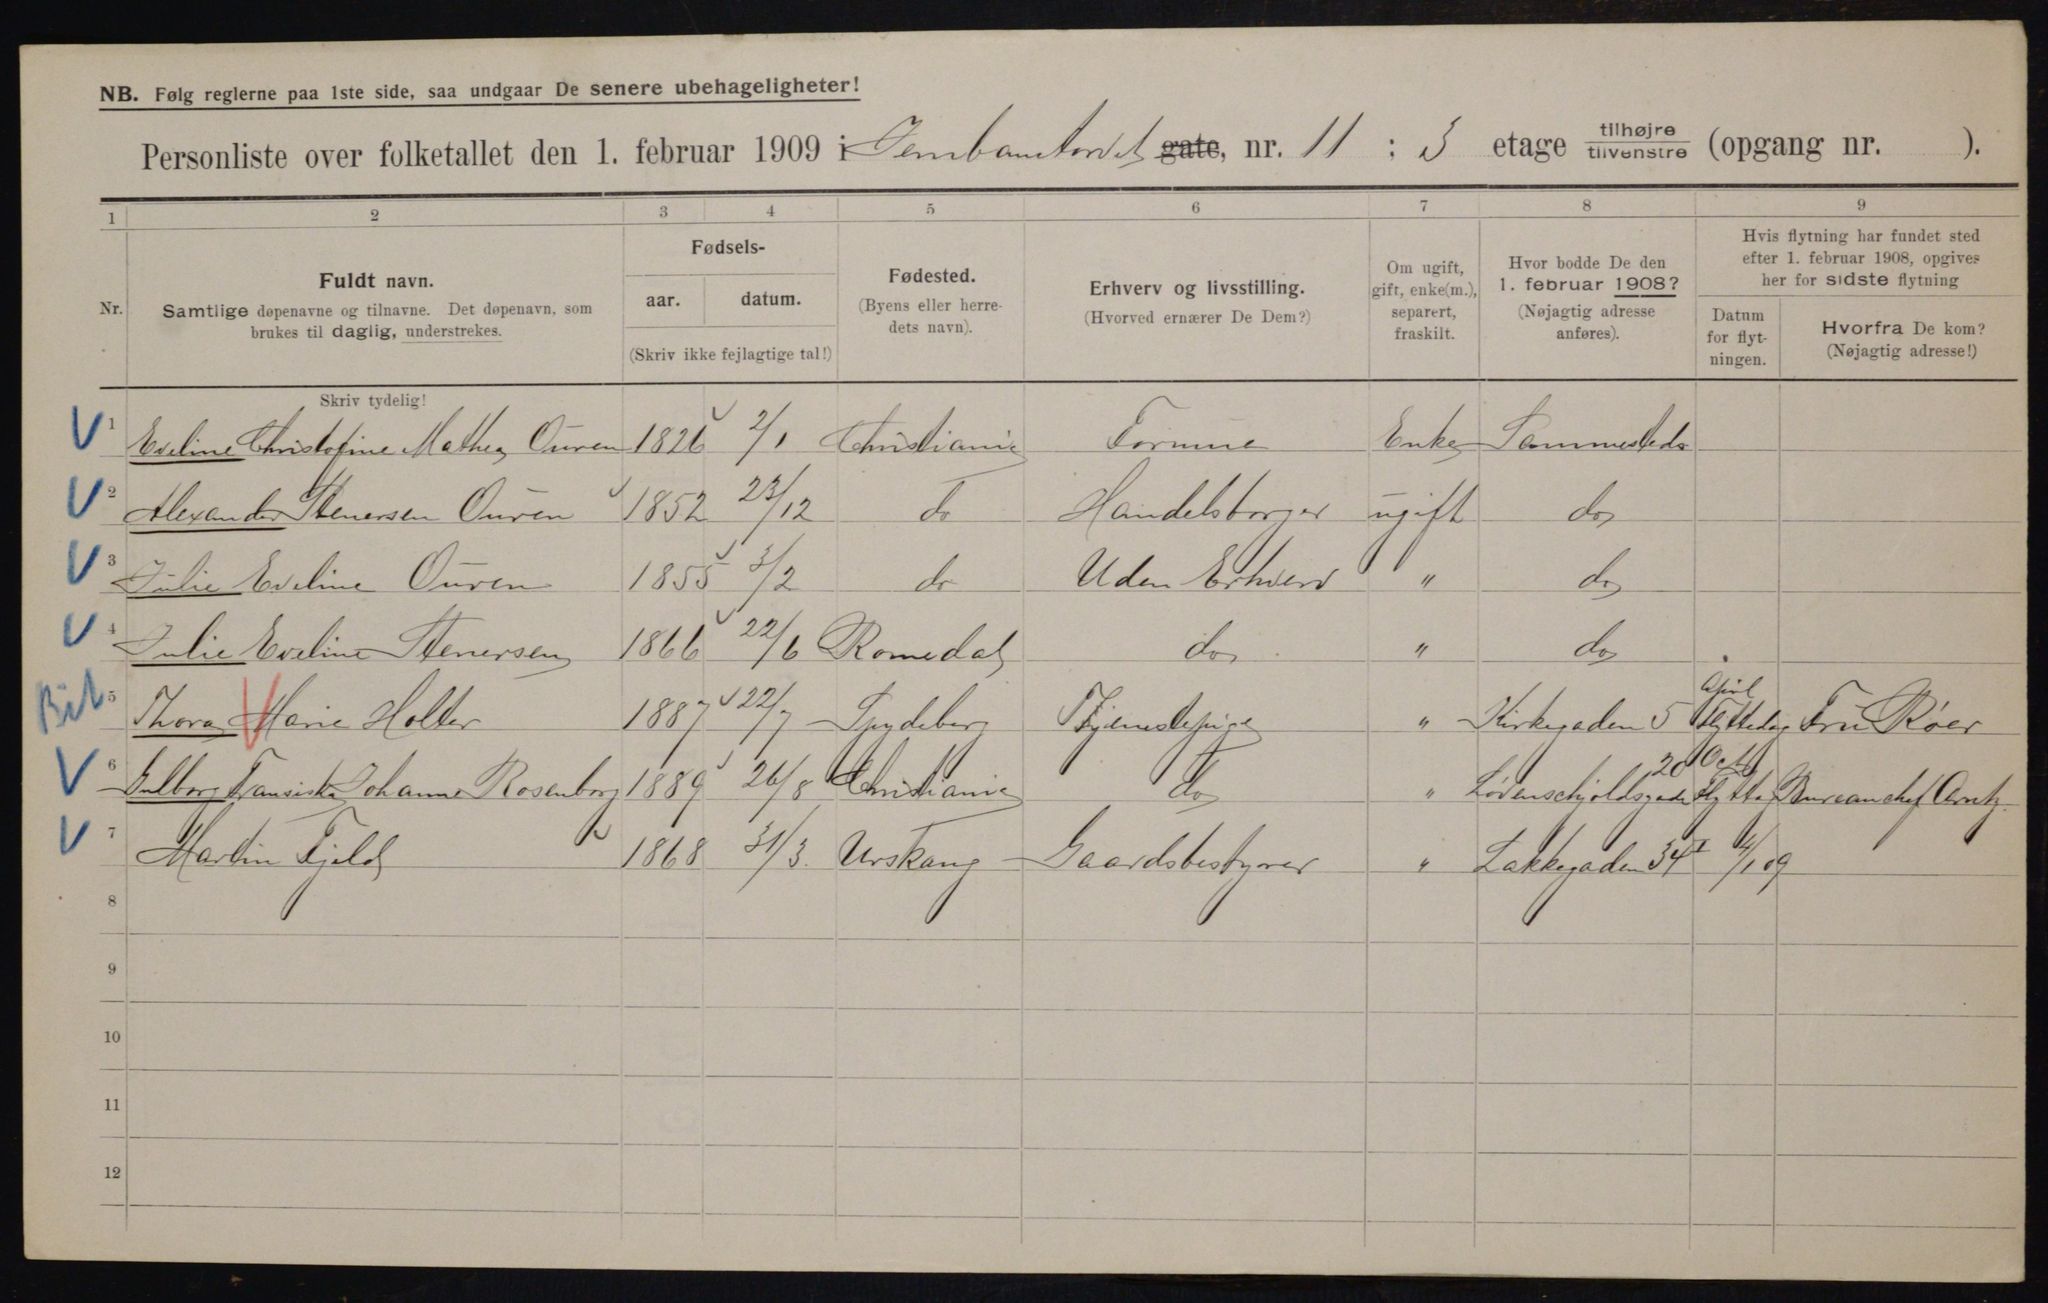 NB. Følg reglerne paa 1ste side, saa undgaar De senere ubehageligheter!
Personliste over folketallet den 1. februar 1909 i Jernbanetorvet gate, nr. 11 ; 3 etage tilhøjre tilvenstre (opgang nr. ).
1 2 3 4 5 6 7 8 9
Nr.
Fuldt navn.
Samtlige døpenavne og tilnavne. Det døpenavn, som
brukes til daglig, understrekes.
Fødsels-
aar. datum.
(Skriv ikke fejlagtige tal!)
Fødested.
(Byens eller herre-
dets navn).
Erhverv og livsstilling.
(Hvorved ernærer De Dem?)
Om ugift,
gift, enke(m.),
separert,
fraskilt.
Hvor bodde De den
1. februar 1908?
(Nøjagtig adresse
anføres).
Hvis flytning har fundet sted
efter 1. februar 1908, opgives
her for sidste flytning
Datum
for flyt-
ningen.
Hvorfra De kom?
(Nøjagtig adresse!)
Skriv tydelig!
1 Eveline Christofine Mathea Ouren 1826 2/1 Christiania Formue Enke Sammesteds
2 Alexander Stenersen Ouren 1852 23/12 do Handelsborger ugift do
3 Julie Eveline Ouren 1855 3/2 do Uden Erhverv " do
4 Julie Eveline Stenersen 1866 22/6 Romedal do " do
Bit 5 Thora Marie Holter 1887 22/7 Spydeberg Tjenestepige " Kirkegaden 5 April Flyttedag Fru Røer
6 Fransiska Johanne Rosenborg 1889 26/8 Christiania do " Løvenschjoldsgade 20 Oct Flyttag Bureauchef Arntz
7 Martin Fjeld 1868 31/3 Urskaug Gaardsbestyrer " Lakkegaden 34 I 4/1 09
8
9
10
11
12